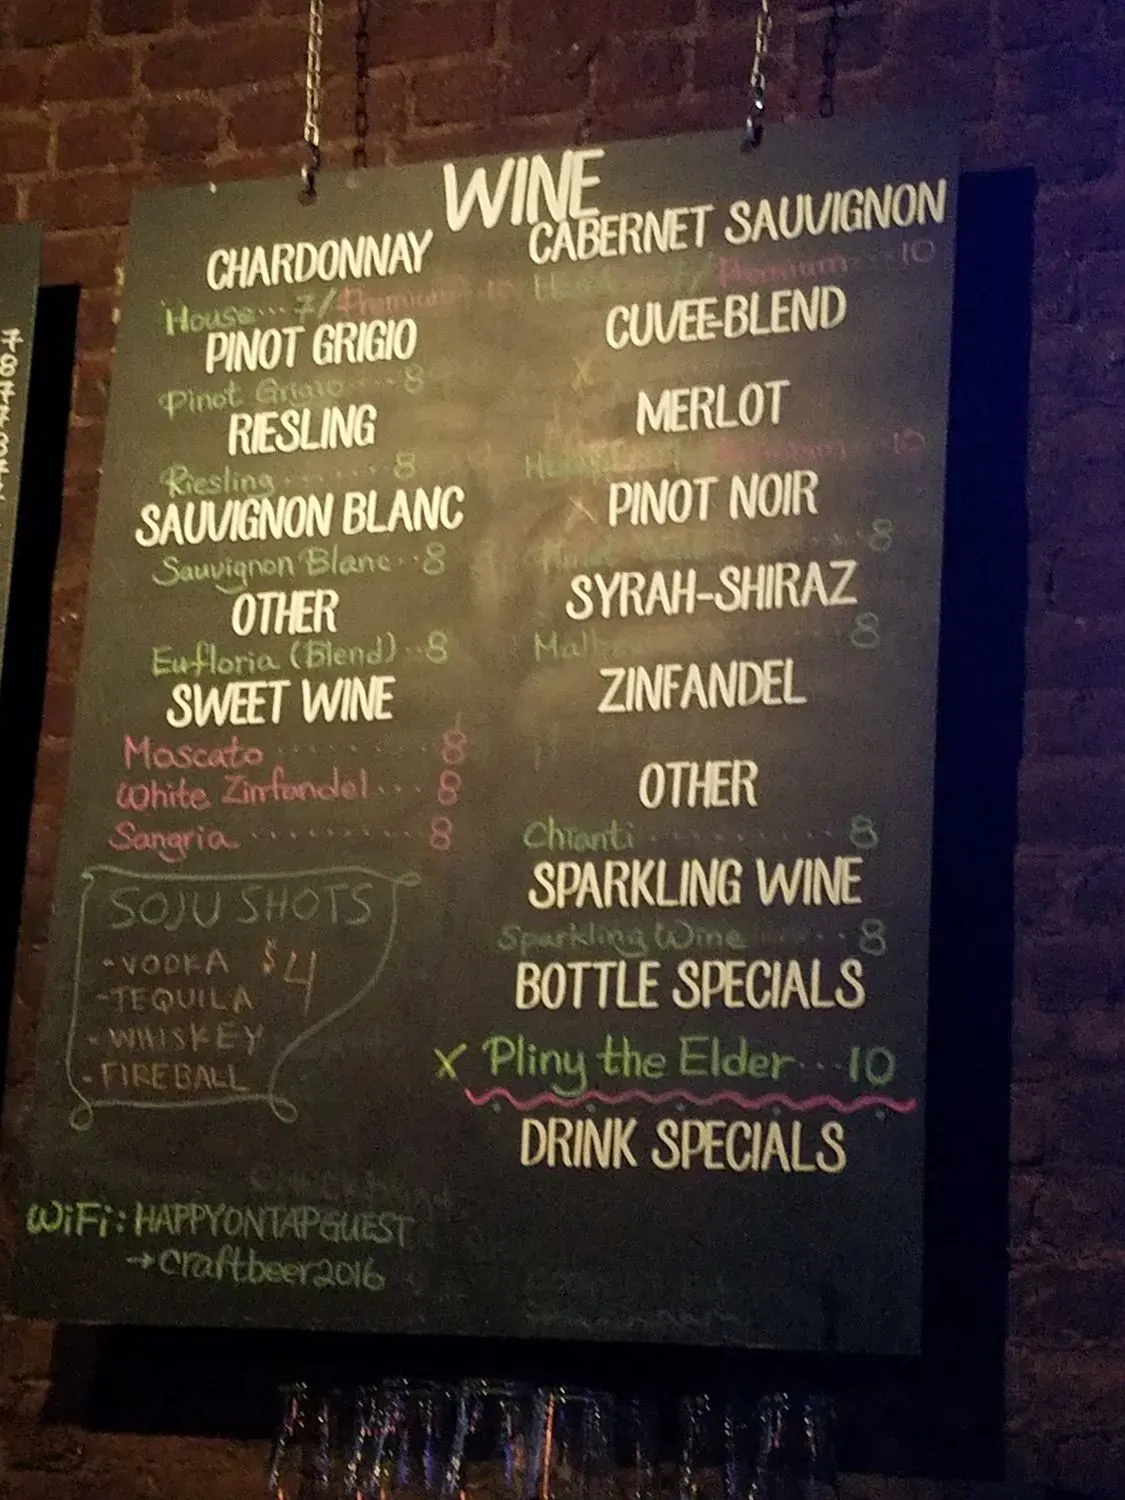 WINE
CHARDONNAY
House... 7/Premium 10
PINOT GRIGIO
Pinot Grigio ... 8
RIESLING
Riesling ...... 8
SAUVIGNON BLANC
Sauvignon Blanc .. 8
OTHER
Eufloria (Blend) .. 8
SWEET WINE
Moscato ....... 8
White Zinfandel ... 8
Sangria ......... 8
SOJU SHOTS
-VODKA $4
-TEQUILA
-WHISKEY
-FIREBALL
WiFi: HAPPYONTAPGUEST
→craftbeer2016
CABERNET SAUVIGNON
Premium ... 10
CUVEE-BLEND
MERLOT
Premium .. 10
PINOT NOIR
8
SYRAH-SHIRAZ
8
ZINFANDEL
OTHER
Chianti ......... 8
SPARKLING WINE
Sparkling Wine ..... 8
BOTTLE SPECIALS
X Pliny the Elder ... 10
DRINK SPECIALS